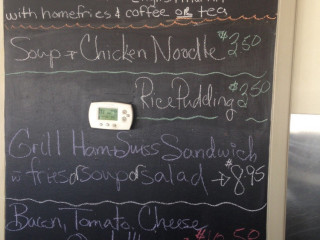 with homefries & coffee or tea
Soup → Chicken Noodle $2.50
Rice Pudding $2.50
Grill Ham & Swiss Sandwich
w fries or soup or salad → $8.95
Bacon, Tomato, Cheese
$10.50